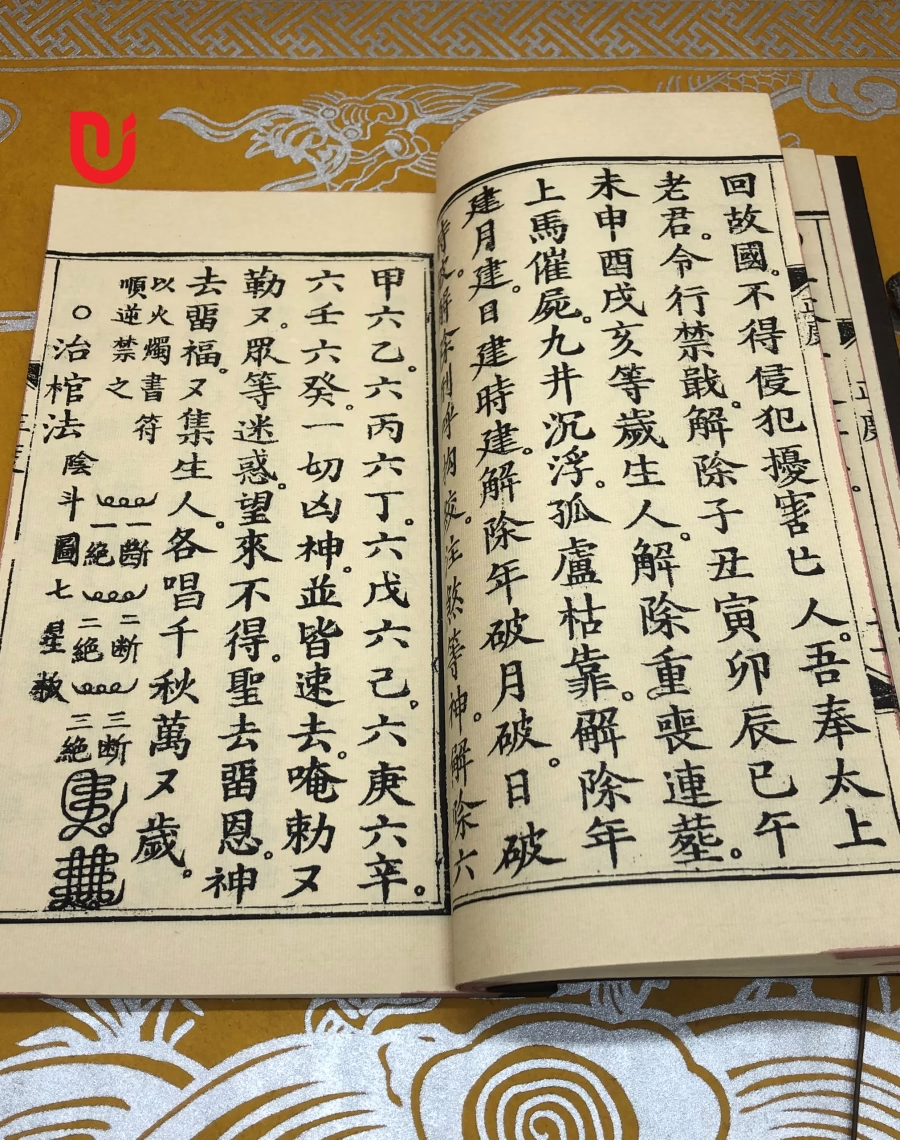 回故國。不得侵犯擾害亡人。吾奉太上
老君。令行禁戢。解除子丑寅卯辰巳午
未申酉戌亥等歲生人。解除重喪連塟。
上馬催屍。九井沉浮。孤虛枯靠。解除年
建月建。日建時建。解除年破月破。日破
解除六
甲六乙。六丙六丁。六戊六己。六庚六辛。
六壬六癸。一切凶神。並皆速去。唵勑又
勒又。眾等迷惑。望來不得。聖去畱恩。神
去畱福。又集生人。各唱千秋萬又歲。
以火燭書符
順逆禁之
○治棺法
陰斗圖七星敕
一斷
一絕
二斷
二絕
三斷
三絕